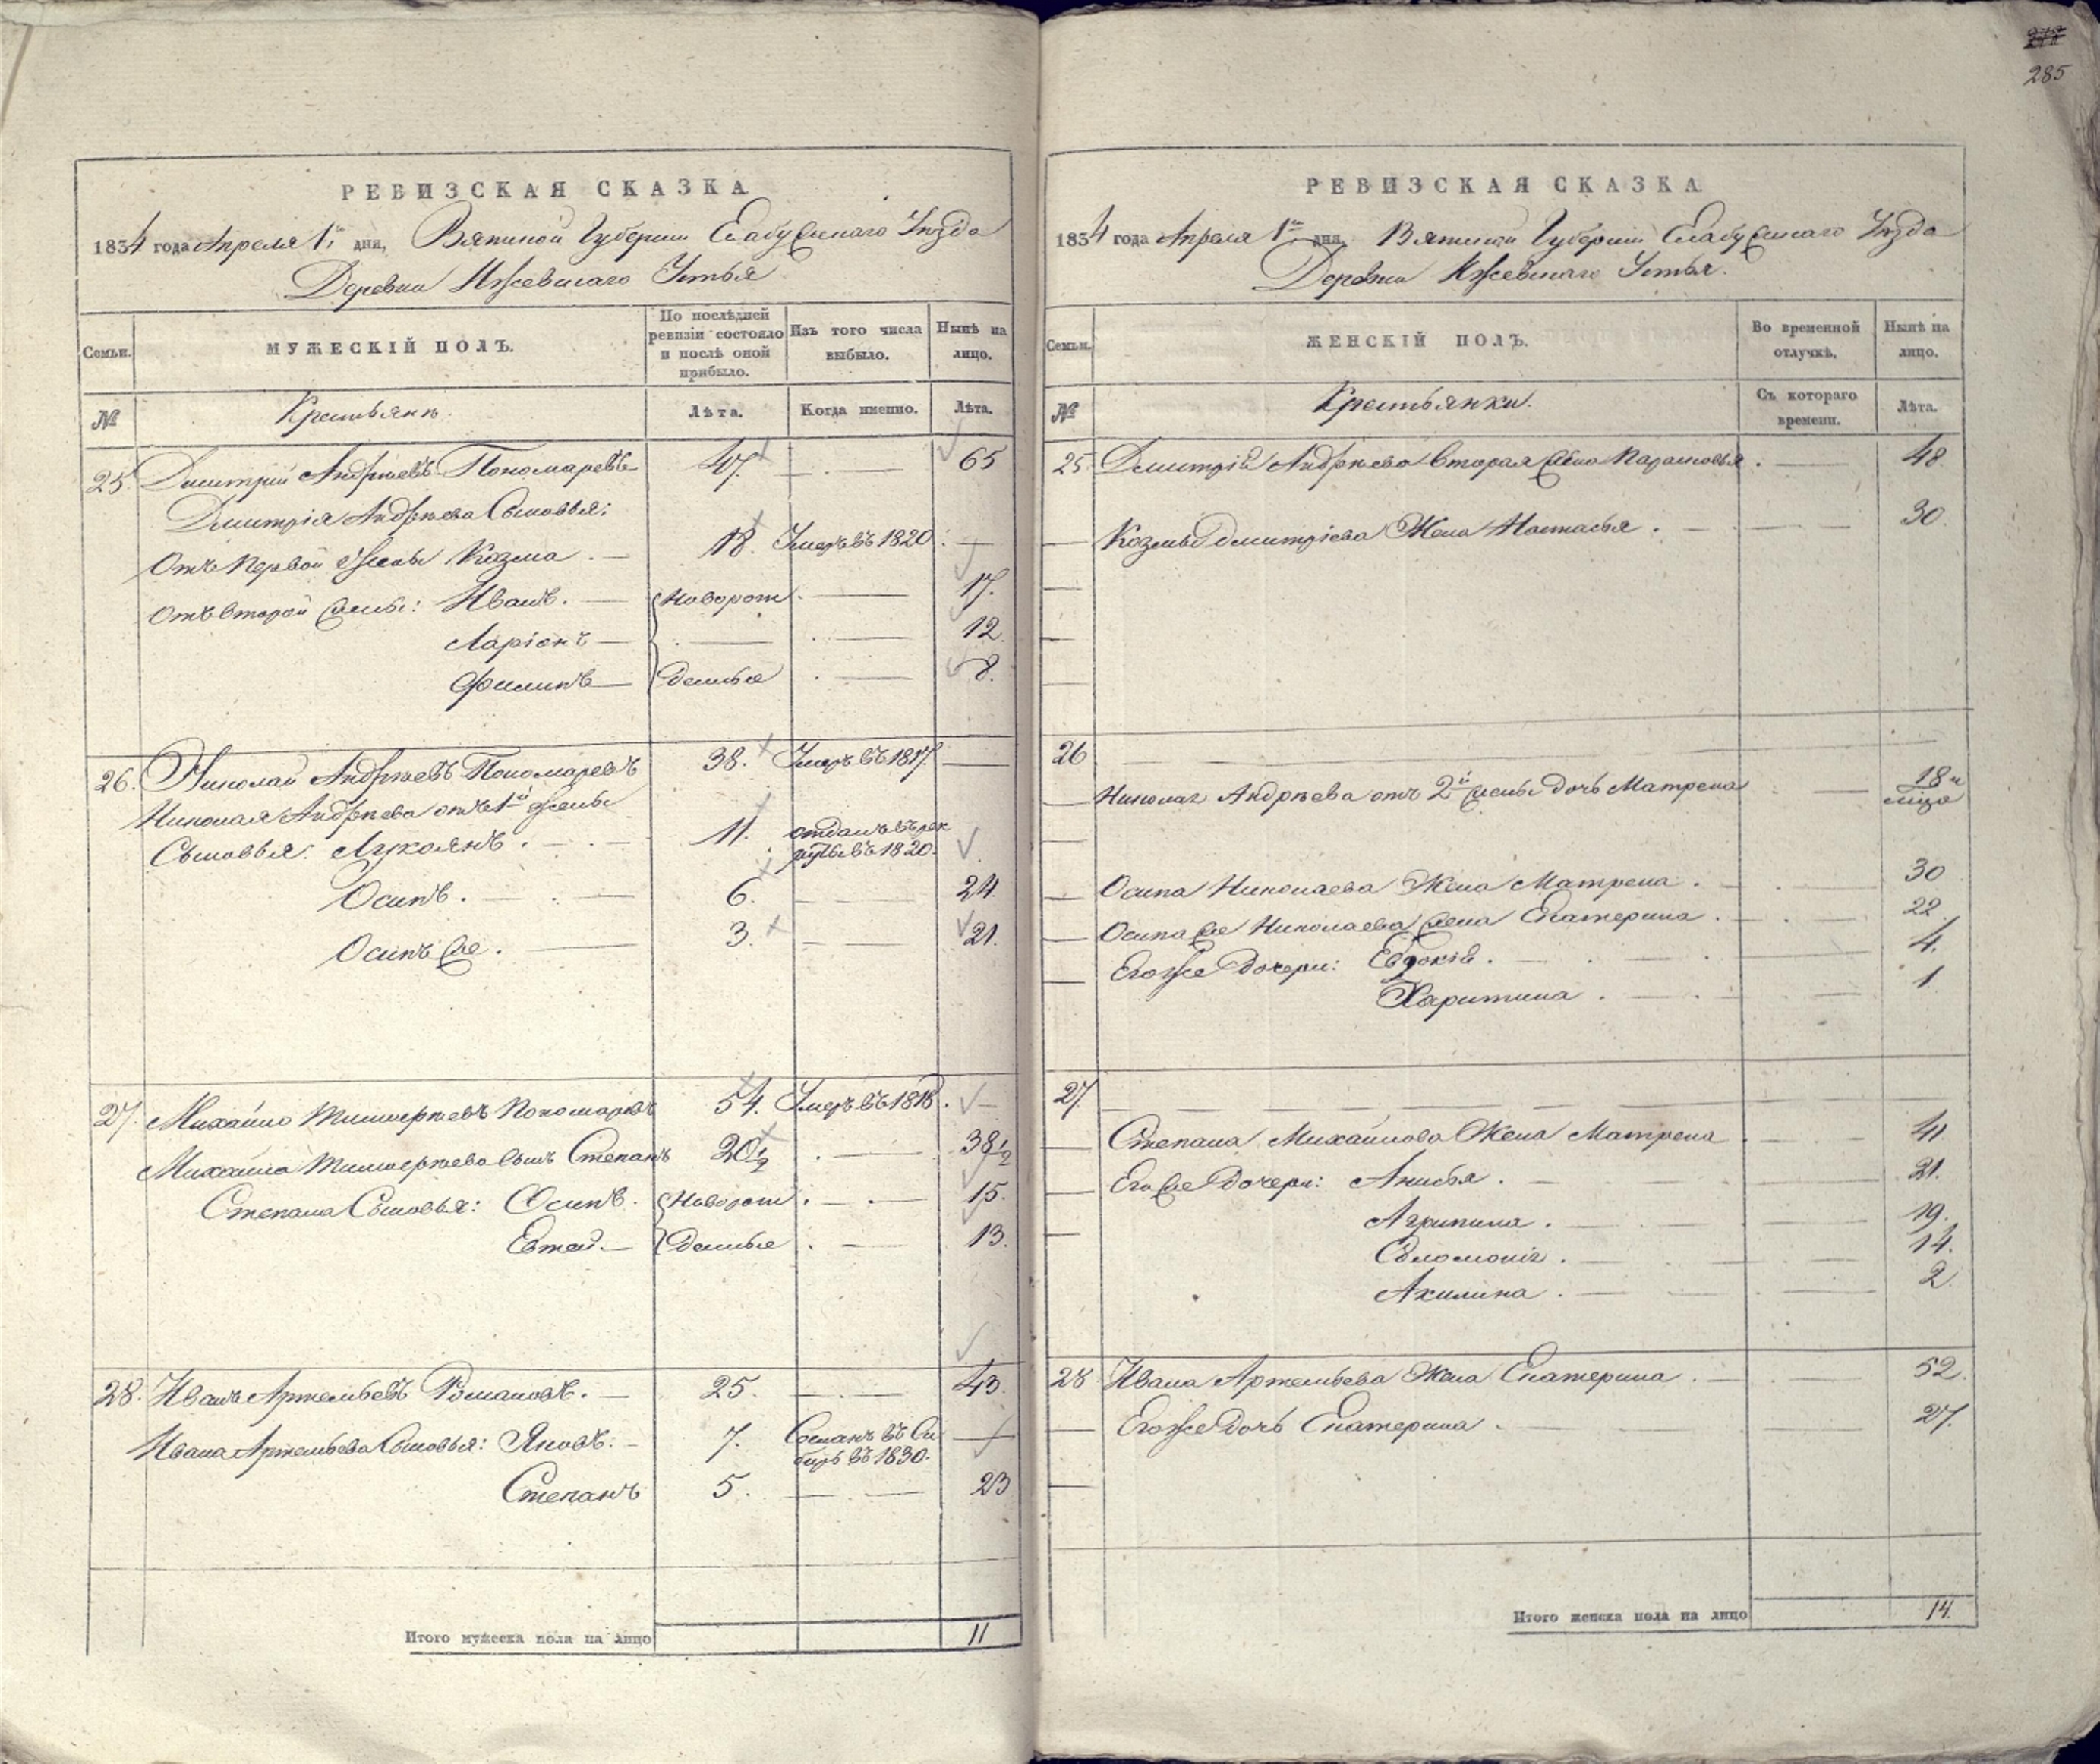 РЕВИЗСКАЯ СКАЗКА
1834 года Апреля 1го дня, Вятской Губернии Елабужскаго Уѣзда
Деревни Ижевскаго Устья
Семьи.
МУЖЕСКІЙ ПОЛЪ.
По послѣдней ревизіи состояло и послѣ оной прибыло.
Изъ того числа выбыло.
Нынѣ на лицо.
№
Крестьянъ.
Лѣта.
Когда именно.
Лѣта.
25. Дмитрій Андрѣевъ Пономаревъ 47. 65
Дмитрія Андрѣева Сыновья:
Отъ первой жены Козма 18. Умеръ въ 1820.
Отъ второй жены: Иванъ. Новорож 17.
Ларіонъ 12.
Филипъ денные 8.
26. Николай Андрѣевъ Пономаревъ 38. Умеръ въ 1817.
Николая Андрѣева отъ 1й жены
Сыновья: Лукоянъ. 11. отданъ въ рек
руты въ 1820.
Осипъ. 6. 24.
Осипъ же. 3. 21.
27. Михайло Тимоѳѣевъ Пономаревъ 54. Умеръ въ 1818.
Михайла Тимоѳѣева сынъ Степанъ 20½ 38½
Степана Сыновья: Осипъ. Новорож 15.
Евтей. Денные 13.
28. Иванъ Артемьевъ Романовъ. 25. 43.
Ивана Артемьева Сыновья: Яковъ. 7. Сосланъ въ Си
бирь въ 1830.
Степанъ 5. 23
Итого мужеска пола на лицо 11
285
РЕВИЗСКАЯ СКАЗКА
1834 года Апреля 1го дня, Вятской Губерніи Елабужскаго Уѣзда
Деревни Ижевскаго Устья.
Семьи.
ЖЕНСКІЙ ПОЛЪ.
Во временной отлучкѣ.
Нынѣ на лицо.
№
Крестьянки.
Съ котораго времени.
Лѣта.
25. Дмитрія Андрѣева вторая жена Парасковья 48.
Козмы Дмитріева Жена Настасья. 30.
26
Николая Андрѣева отъ 2й жены дочь Матрена 18 и
лица
Осипа Николаева Жена Матрена. 30
Осипа же Николаева жена Екатерина. 22
Егоже дочери: Евдокія. 4.
Харитина. 1
27.
Степана Михайлова Жена Матрена 41
Его же дочери: Анисья. 21.
Агрипина. 19.
Соломонія. 14.
Акилина. 2.
28. Ивана Артемьева Жена Екатерина. 52.
Егоже дочь Екатерина. 27.
Итого женска пола на лицо 14.